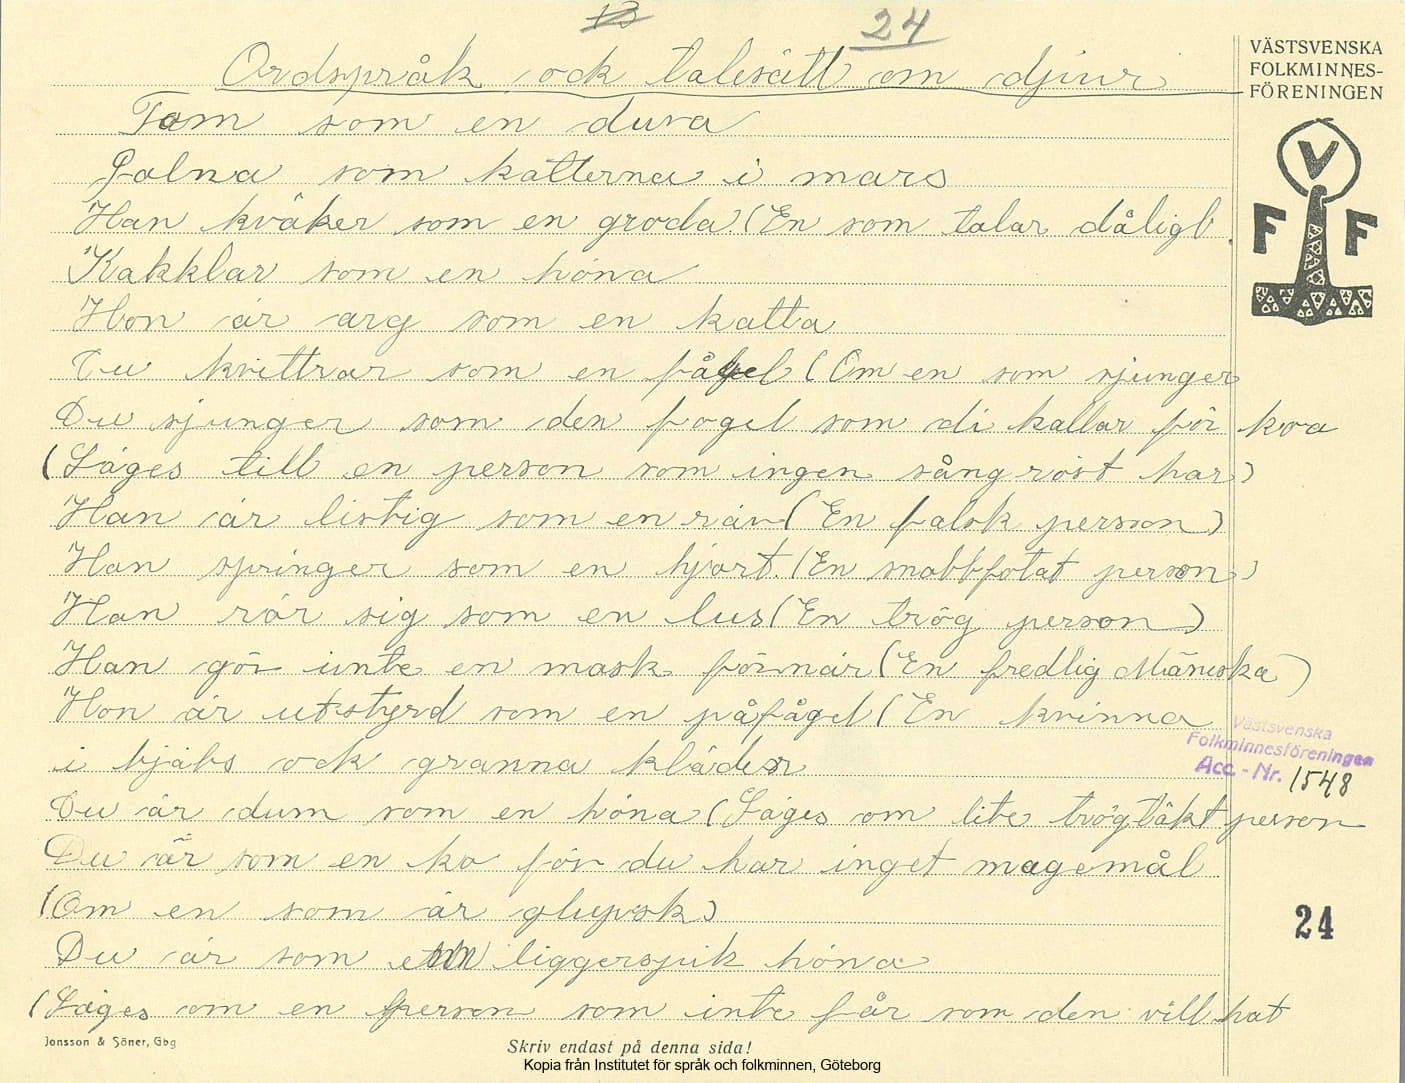 13
24
Ordspråk ock talesätt om djur
VÄSTSVENSKA
FOLKMINNES-
FÖRENINGEN
Tam som en duva
Galna som katterna i mars
V
F F
Han kväker som en groda (En som talar dåligt
Kakklar som en höna
Hon är arg som en katta
Du kvittrar som en fågel (Om en som sjunger
Du sjunger som den fogel som di kallar för koa
(Säges till en person som ingen sångröst har)
Han är listig som en räv (En falsk person)
Han springer som en hjort. (En snabbfotat person)
Han rör sig som en lus (En trög person)
Han gör inte en mask förnär (En fredlig Mäniska)
Hon är utstyrd som en påfågel (En kvinna
i bjäfs ock granna kläder
Västsvenska
Folkminnesföreningen
Acc.-Nr. 1548
Du är dum som en höna (Säges om lite trögtäkt person
Du är som en ko för du har inget magemål
(Om en som är glupsk)
24
Du är som en liggersjuk höna
(Säges om en person som inte får som den vill hat
Jonsson & Söner, Gbg
Skriv endast på denna sida!
Kopia från Institutet för språk och folkminnen, Göteborg